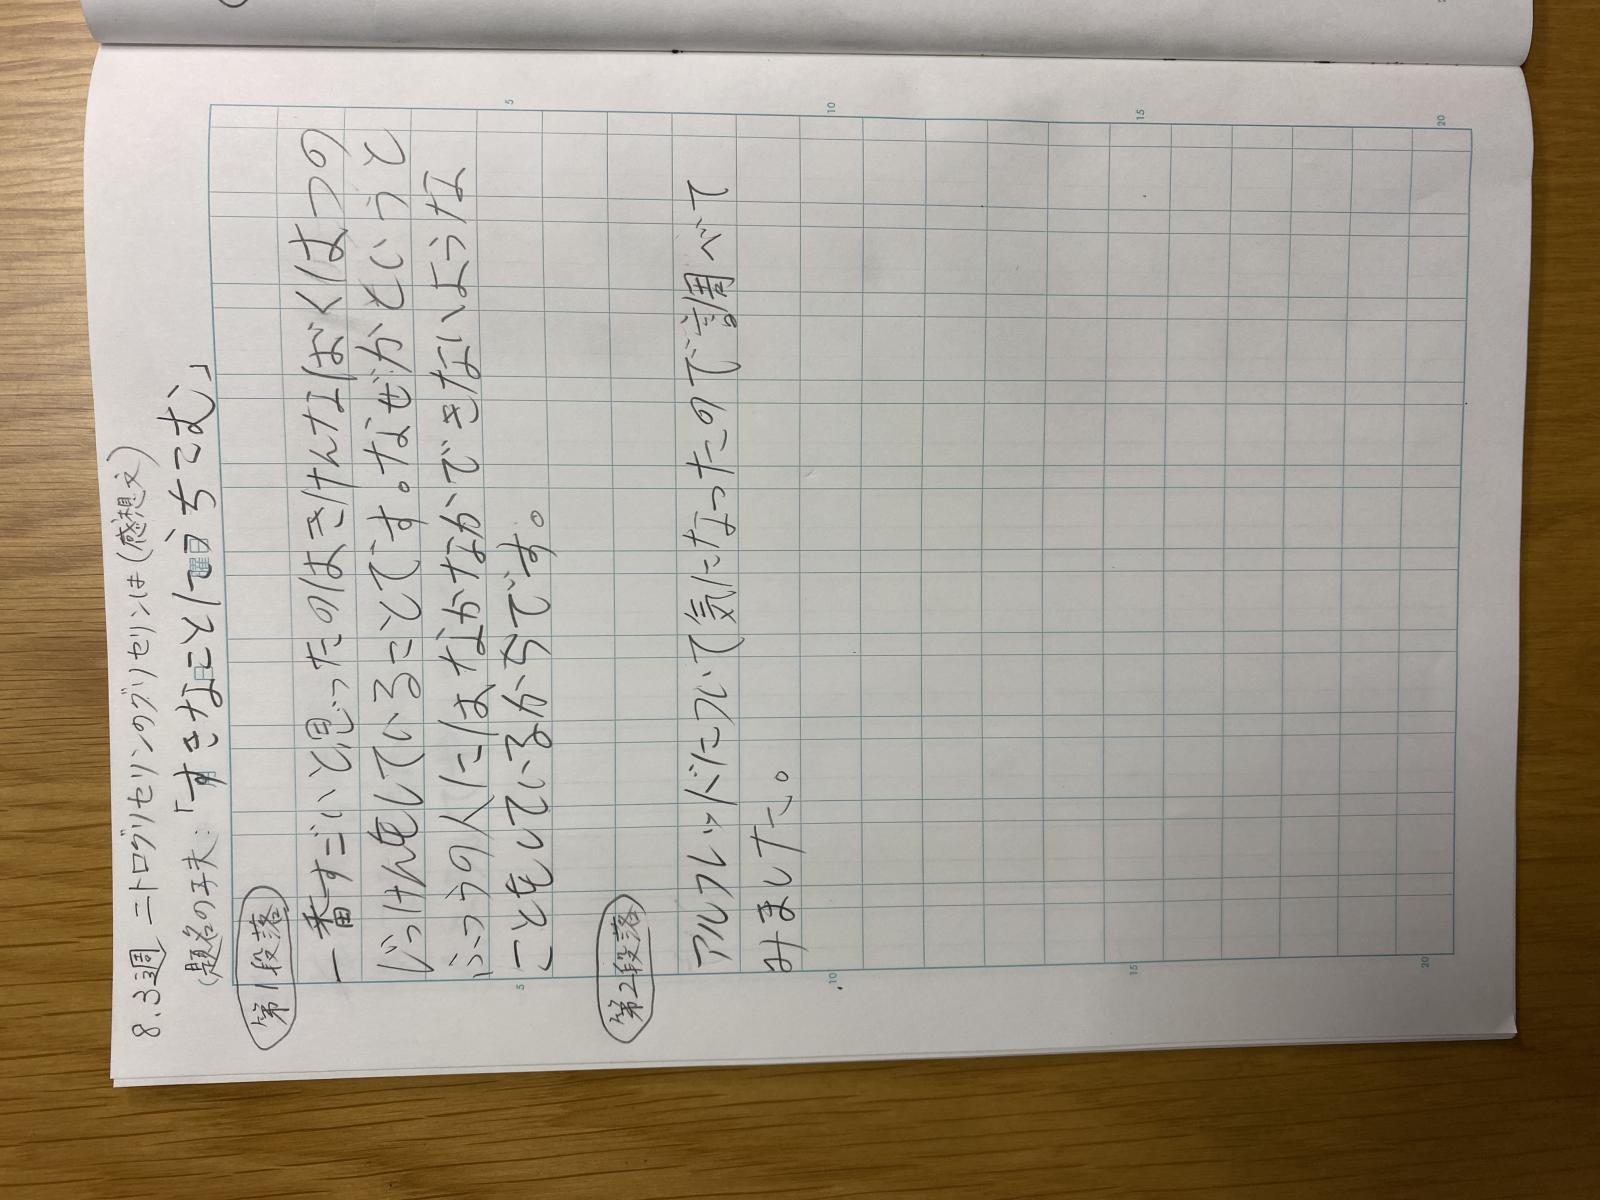 8.3週 ニトログリセリンのグリセリンは(感想文)
(題名の工夫:「すきなことしてうちこむ」
第1段落
一番すごいと思ったのはきけんなばくはつの
じっけんをしていることです。なぜかというと
ふつうの人にはなかなかできないような
ことをしているからです。
第2段落
アルフレッドについて気になったので調べて
みました。